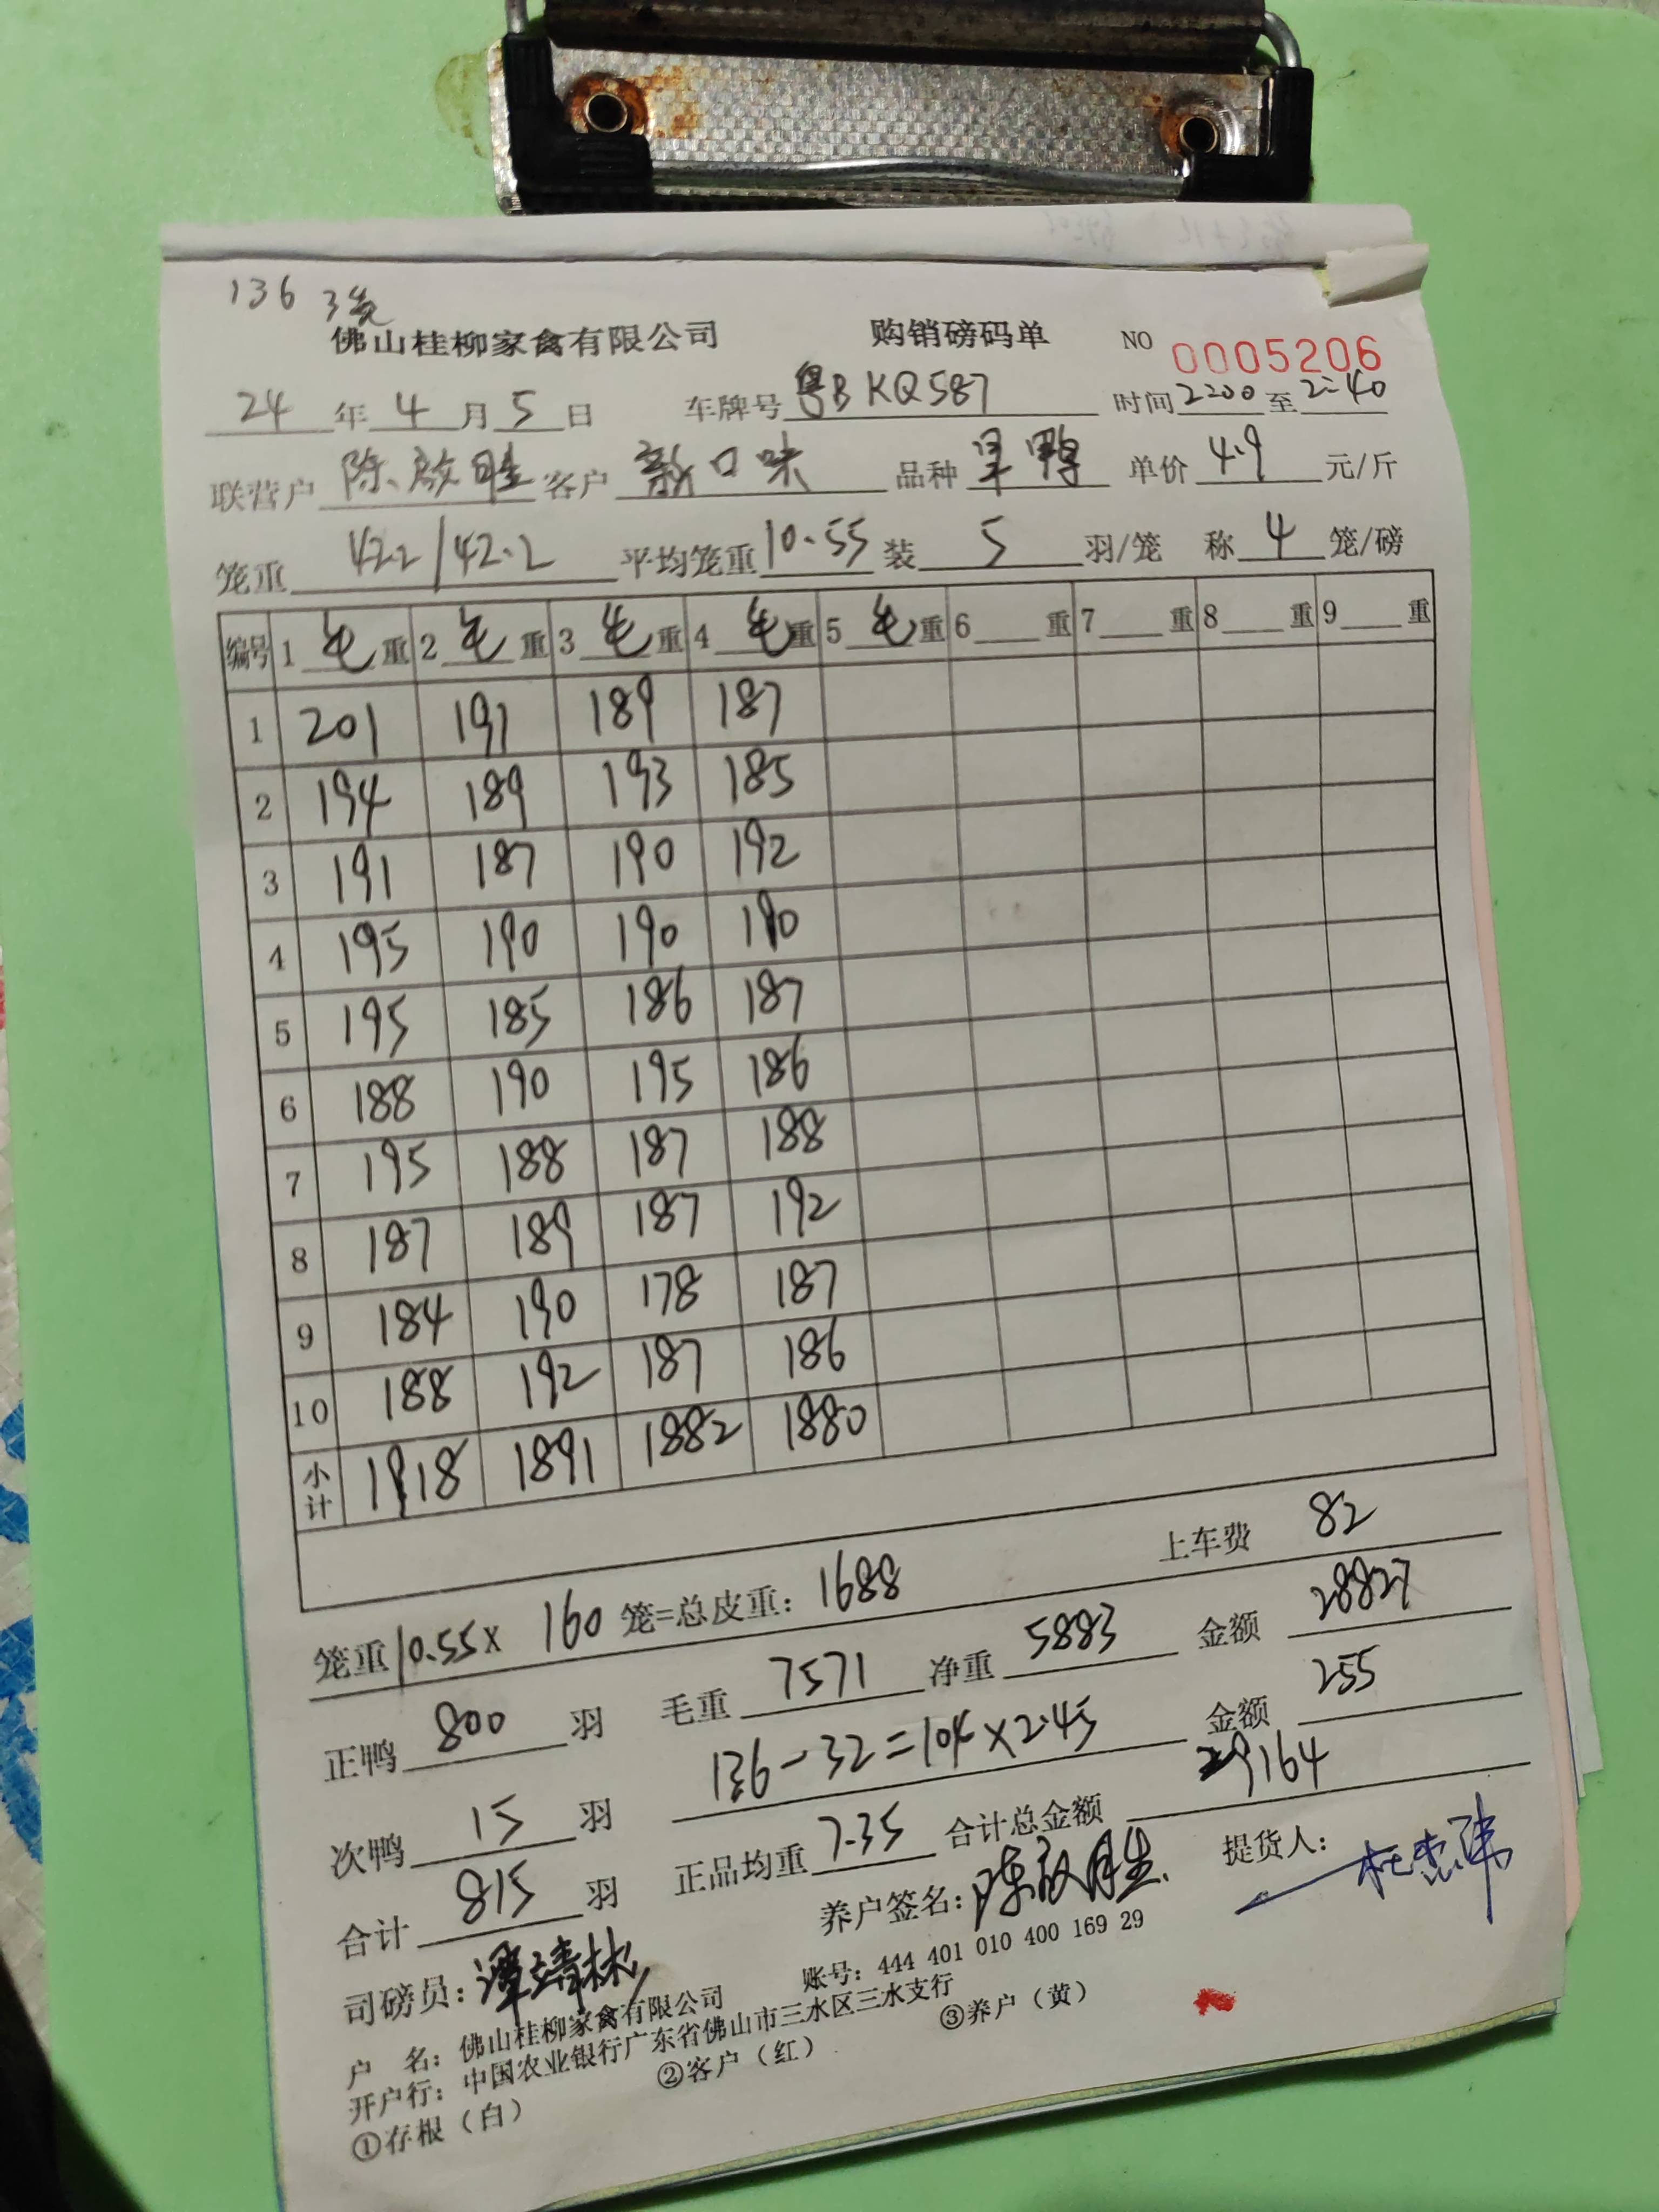 136 3袋
佛山桂柳家禽有限公司 购销磅码单 NO 0005206
24年4月5日 车牌号 粤B KQ587 时间 2200 至 2240
联营户 陈啟胜 客户 新口味 品种 旱鸭 单价 4.9 元/斤
笼重 42.2/42.2 平均笼重 10.55 装 5 羽/笼 称 4 笼/磅
编号 1 毛 重 2 毛 重 3 毛 重 4 毛 重 5 毛 重 6 重 7 重 8 重 9 重
1 201 191 189 187
2 194 189 193 185
3 191 187 190 192
4 195 190 190 190
5 195 185 186 187
6 188 190 195 186
7 195 188 187 188
8 187 189 187 192
9 184 190 178 187
10 188 192 187 186
小计 1918 1891 1882 1880
上车费 82
笼重 10.55 x 160 笼=总皮重: 1688
正鸭 800 羽 毛重 7571 净重 5883 金额 28827
次鸭 15 羽 136-32=104×2.45 金额 255
合计 815 羽 正品均重 7.35 合计总金额 29164
司磅员: 谭靖林 养户签名: 陈啟胜 提货人: 杜杰玮
户 名: 佛山桂柳家禽有限公司 账号: 444 401 010 400 169 29
开户行: 中国农业银行广东省佛山市三水区三水支行
①存根(白) ②客户(红) ③养户(黄)